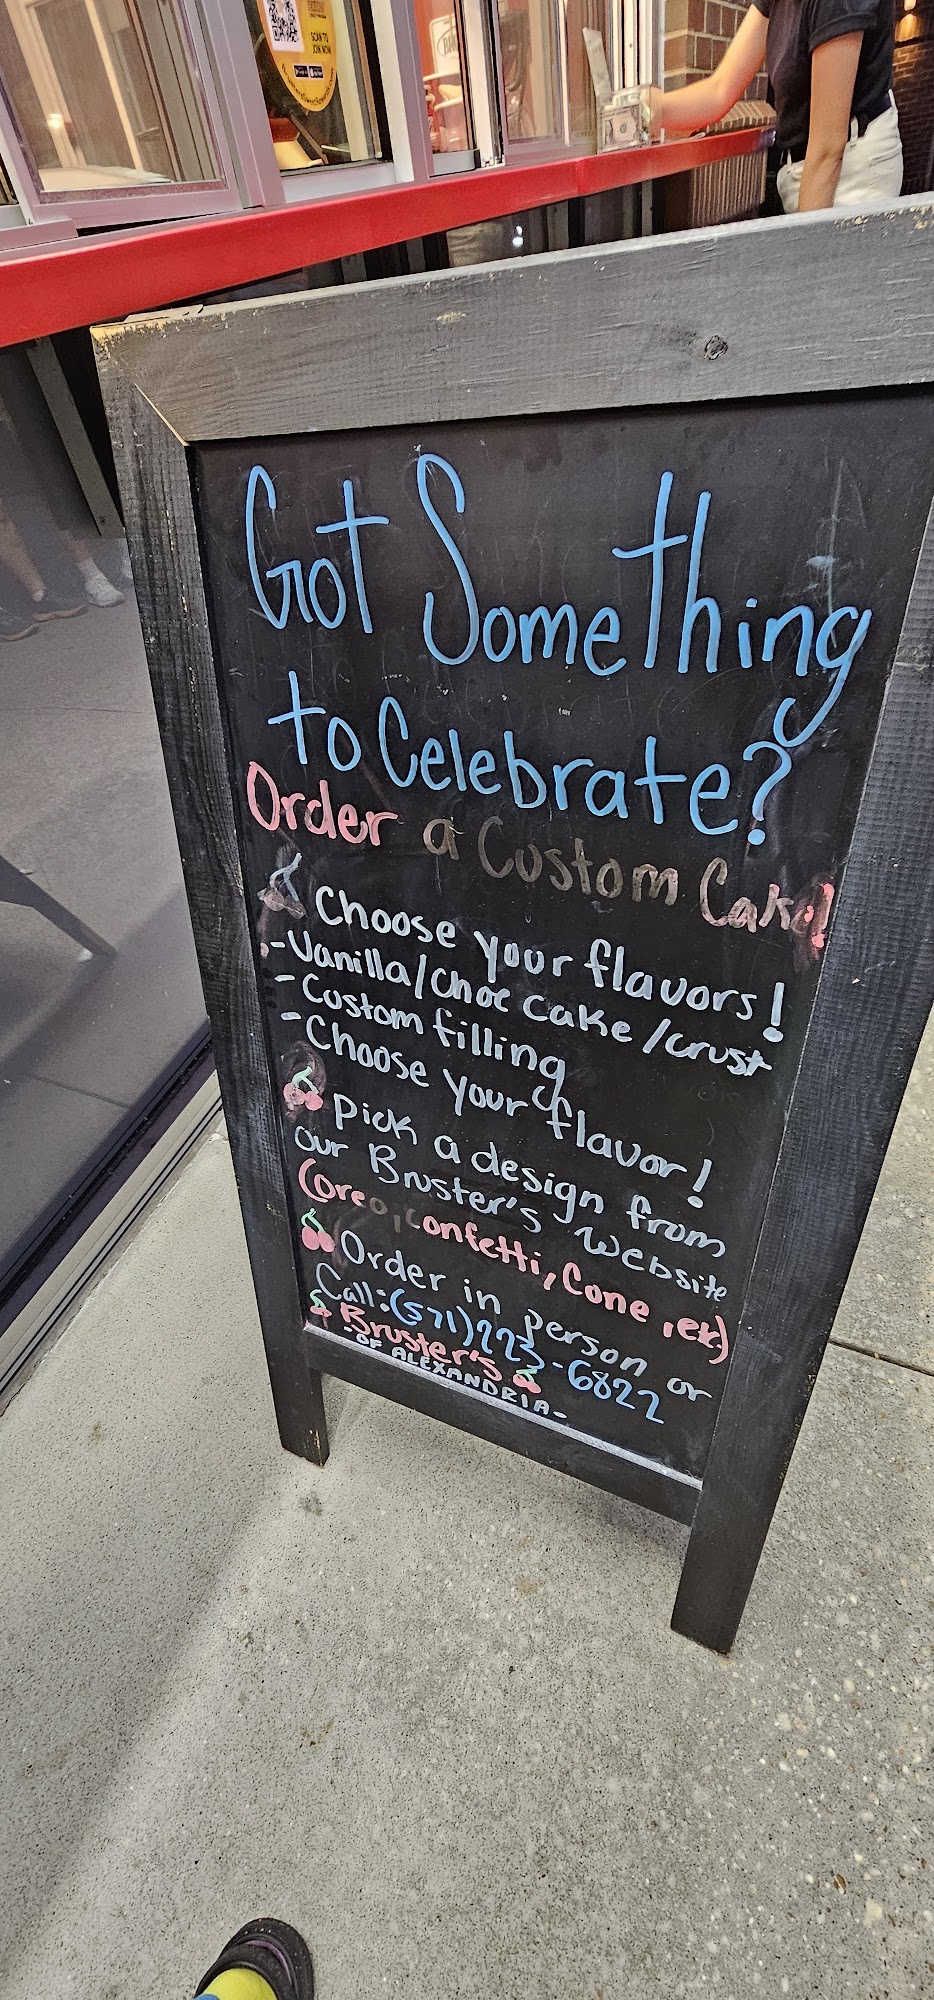 SCAN TO
JOIN NOW
Got Something
to Celebrate?
Order a Custom Cake!
Choose your flavors!
-Vanilla/Choc Cake/crust
-Custom filling
-Choose your flavor!
Pick a design from
our Bruster's website
(oreo, confetti, Cone, etc)
Order in person or
Call:(571)223-6822
Bruster's
-OF ALEXANDRIA-